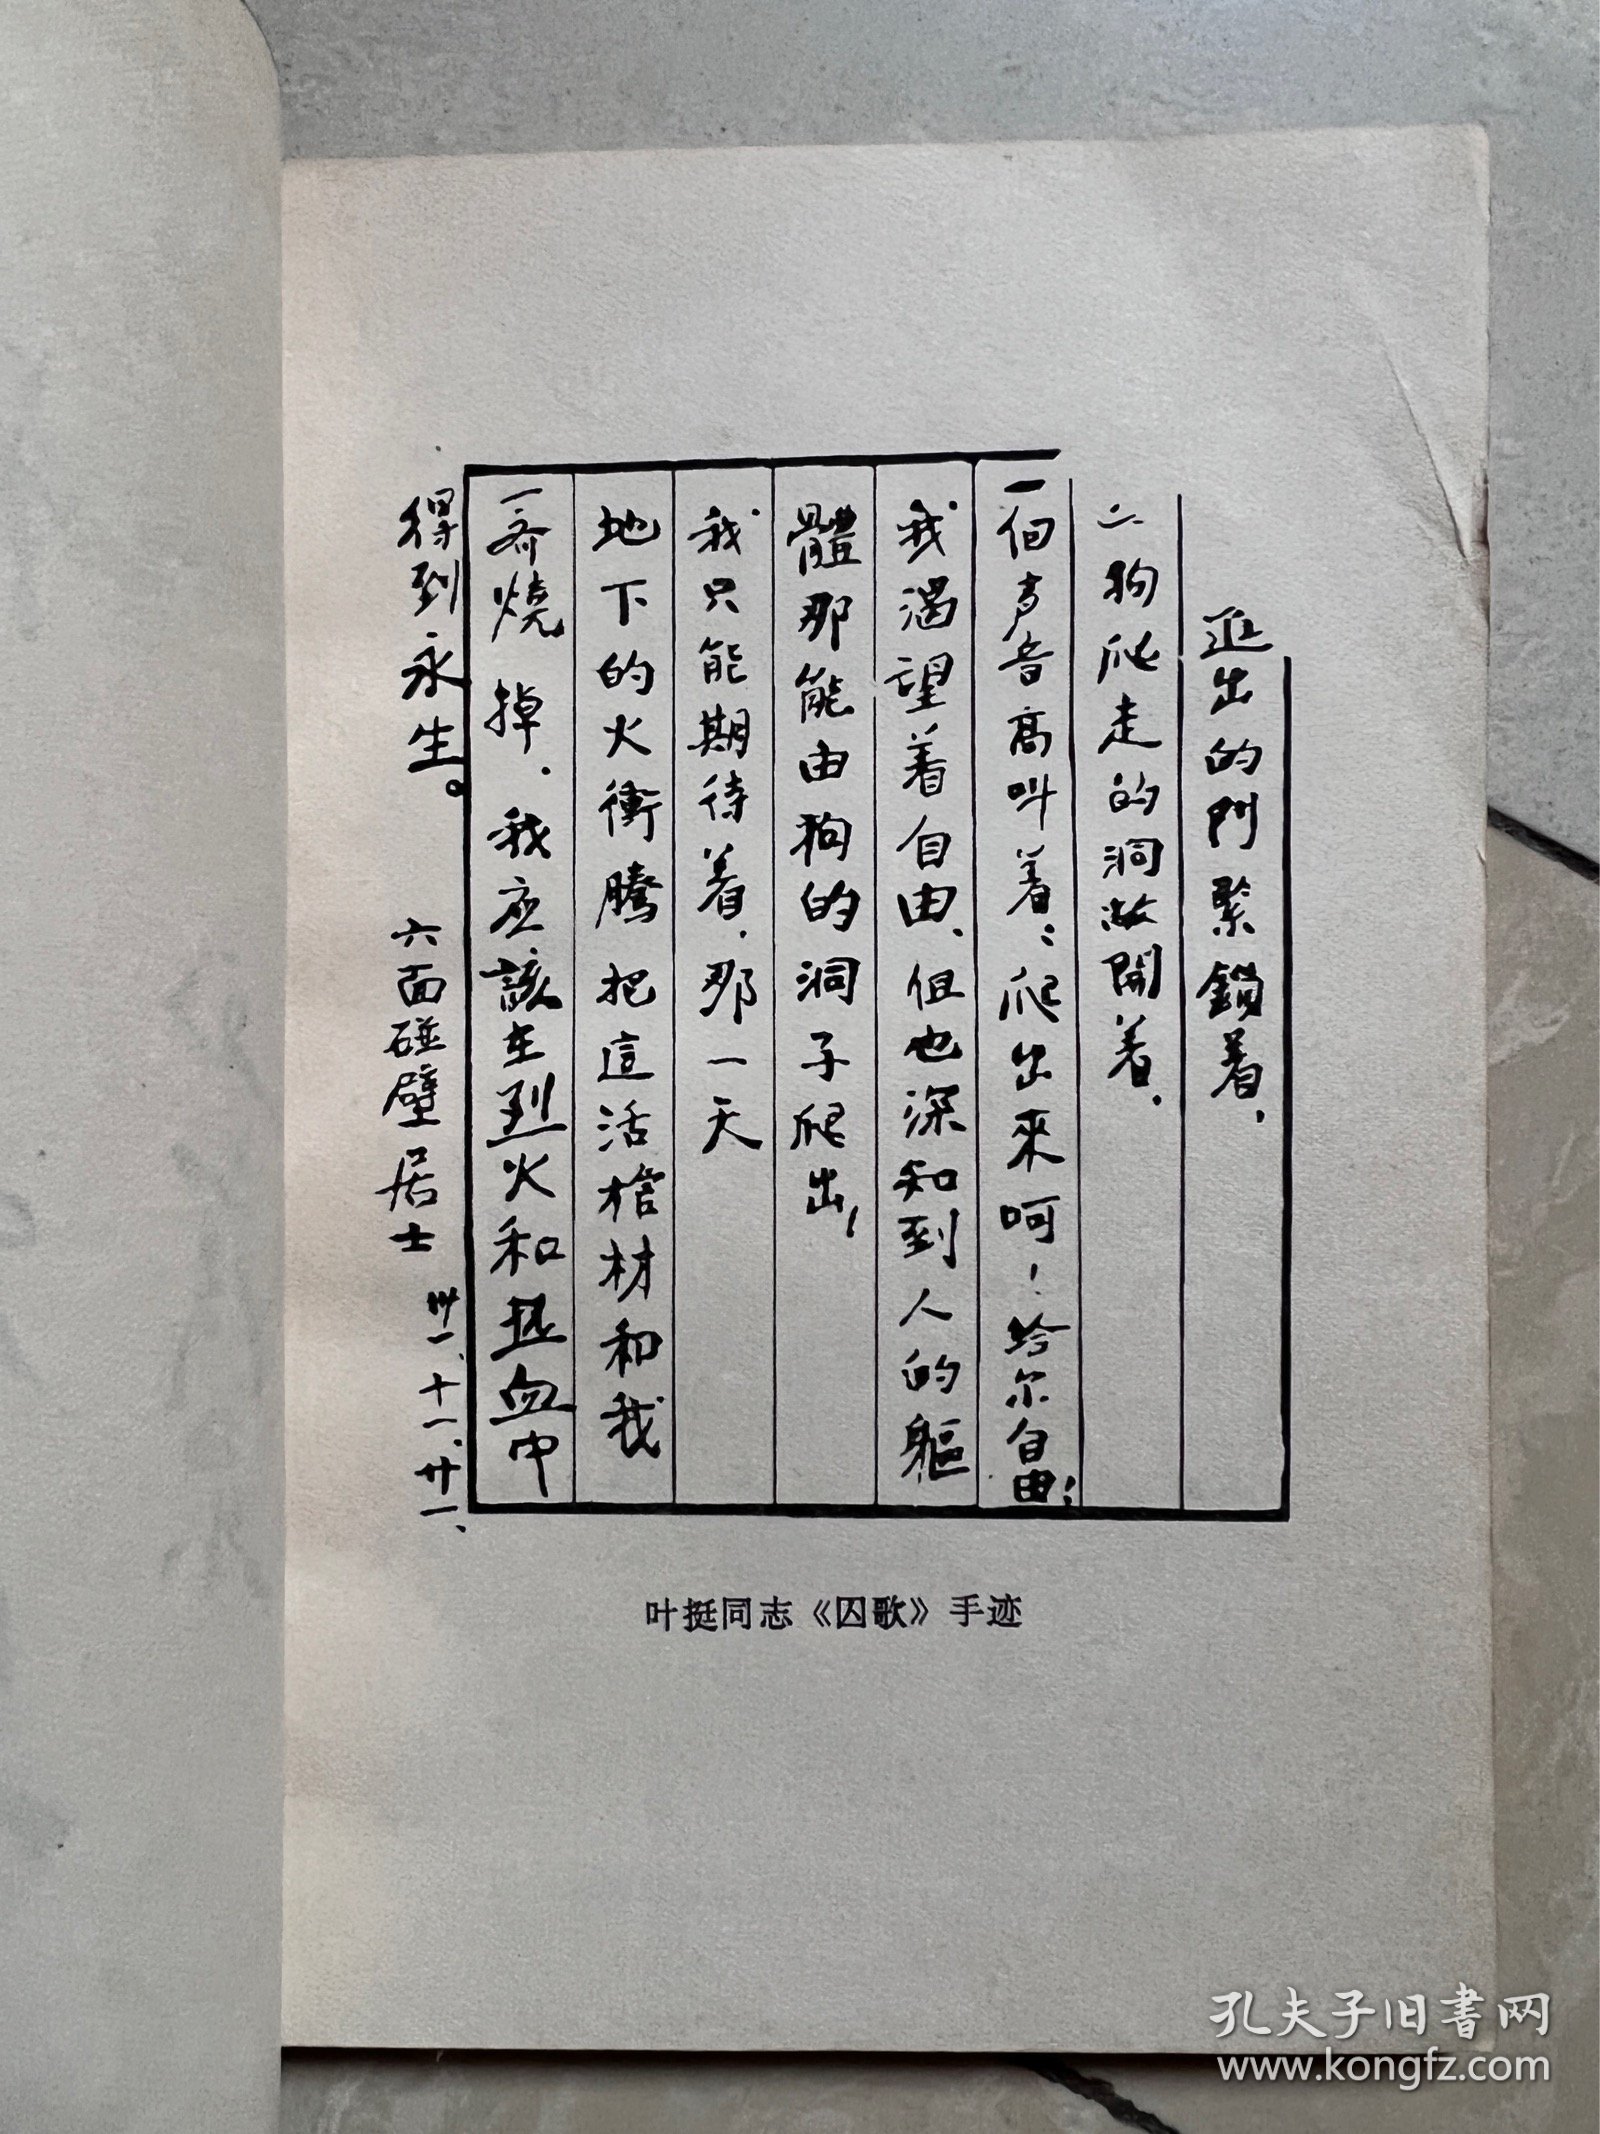 進出的門緊鎖着,
为狗爬走的洞敞開着.
一個声音高叫着:爬出來呵!给尔自由;
我渴望着自由、但也深知到人的軀
體那能由狗的洞子爬出,
我只能期待着,那一天
地下的火衝騰把這活棺材和我
一齐燒掉.我应該在烈火和热血中
得到永生。
六面碰壁居士 卅一、十一、廿一、
叶挺同志《囚歌》手迹
孔夫子旧书网
www.kongfz.com